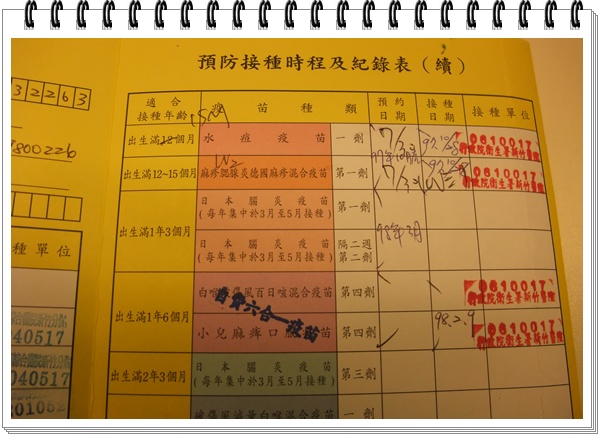 預防接種時程及紀錄表(續)
32263
7800226
適合接種年齡 疫苗種類 預約日期 接種日期 接種單位
出生滿12個月 水痘疫苗 一劑 0610017
行政院衛生署新竹醫院
出生滿12~15個月 麻疹腮腺炎德國麻疹混合疫苗 第一劑 0610017
行政院衛生署新竹醫院
出生滿1年3個月 日本腦炎疫苗
(每年集中於3月至5月接種) 第一劑
98年3月
日本腦炎疫苗
(每年集中於3月至5月接種) 隔二週
第二劑
種單位
出生滿1年6個月 白喉破傷風百日咳混合疫苗 第四劑 0610017
行政院衛生署新竹醫院
自費六合一疫苗
小兒麻痺口服疫苗 第四劑 98.2.9 0610017
行政院衛生署新竹醫院
040517
040517
出生滿2年3個月 日本腦炎疫苗
(每年集中於3月至5月接種) 第三劑
破傷風減量白喉混合疫苗 一劑